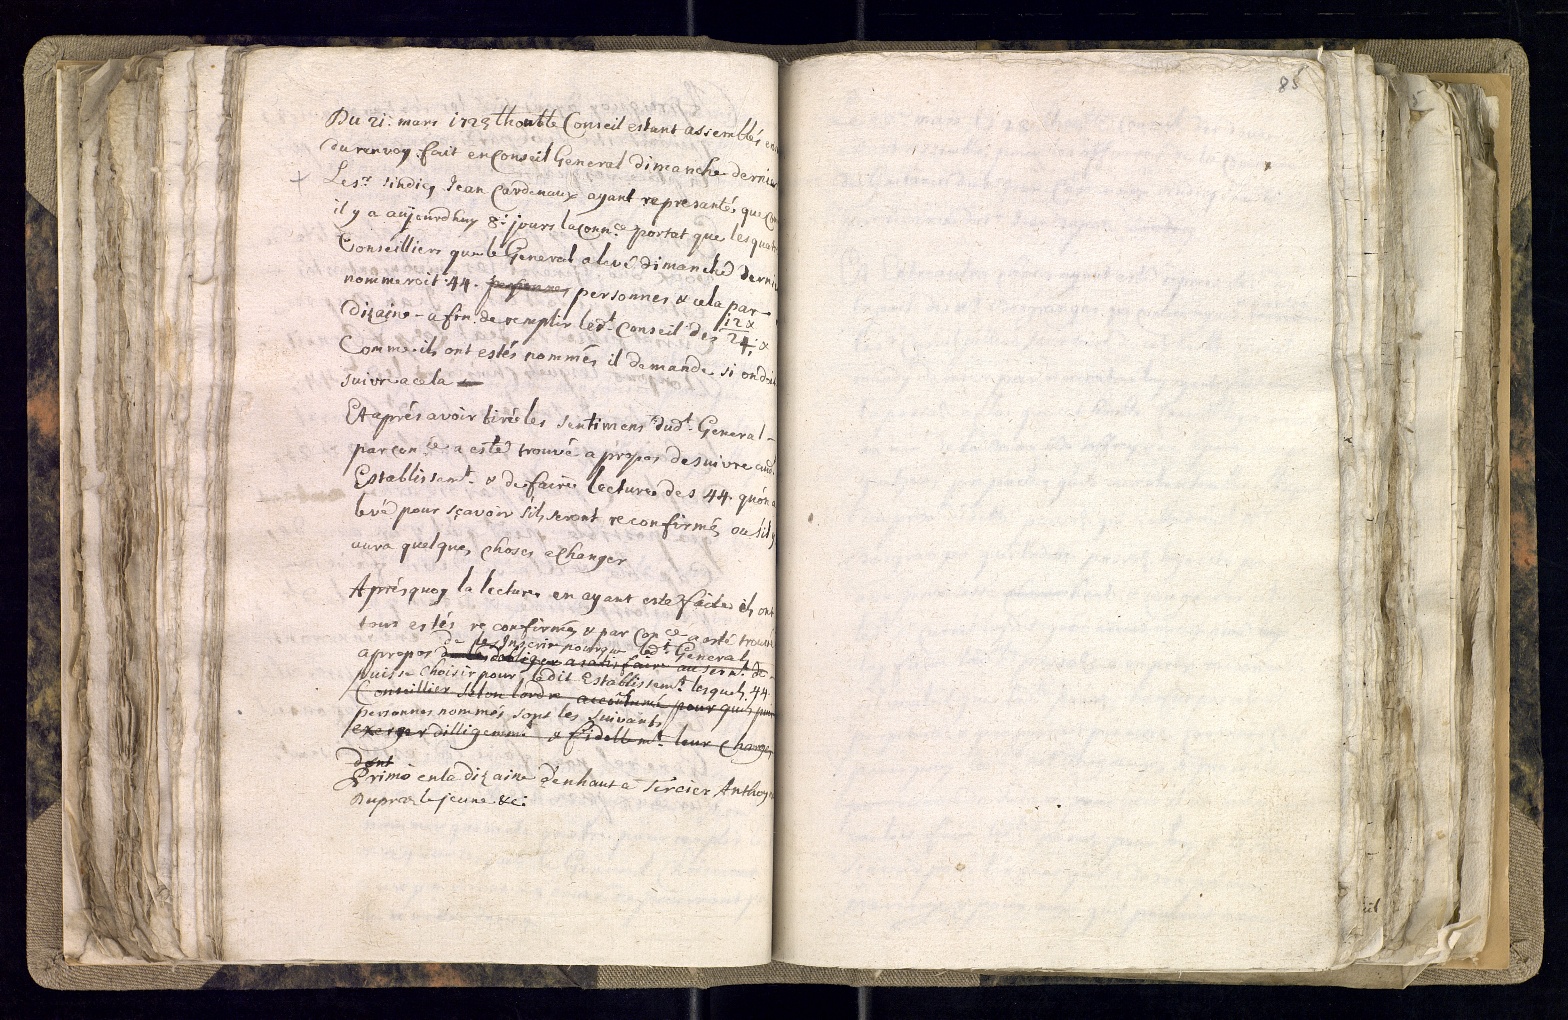 85
Du 21: mars 1723 lhonble Conseil estant assemblés en
du renvoy fait en Conseil General dimanche dernier
Le sr. sindicq Jean Cardenaux ayant represantés que
il y a aujourdhuy 8: jours la connce portat que les quatr
Conseilliers que le General a levé dimanche dernie
nommeroit 44. personnes & cela par
dizaine a fin de remplir ledt. Conseil des 12 x
24. x
Comme ils ont estés nommés il demande si on doit
suivre a cela
Et aprés avoir tiré les sentimens dudt. General
par conce a esté trouvé a propos de suivre aud
Establissemt. & de faire lecture des 44. quon a
levé pour sçavoir s'ils seront reconfirmés ou s'il y
aura quelques choses a changer
Aprés quoy la lecture en ayant esté faite ils ont
tous estés reconfirmés & par conce a esté trouvé
de les Inscrire pour que ledt. General
a propos de les obliger a satisfaire
puisse choisir pour ledit Establissemt. lesquels 44.
Conseillier selon lordre accoutumé pour quils
personnes nommés sont les suivants
exerger dilligemmt & fidellemt. leur charge
dont
Primo en la dizaine denhaut a Tercier Anthoy
Dupraz le jeune &c: